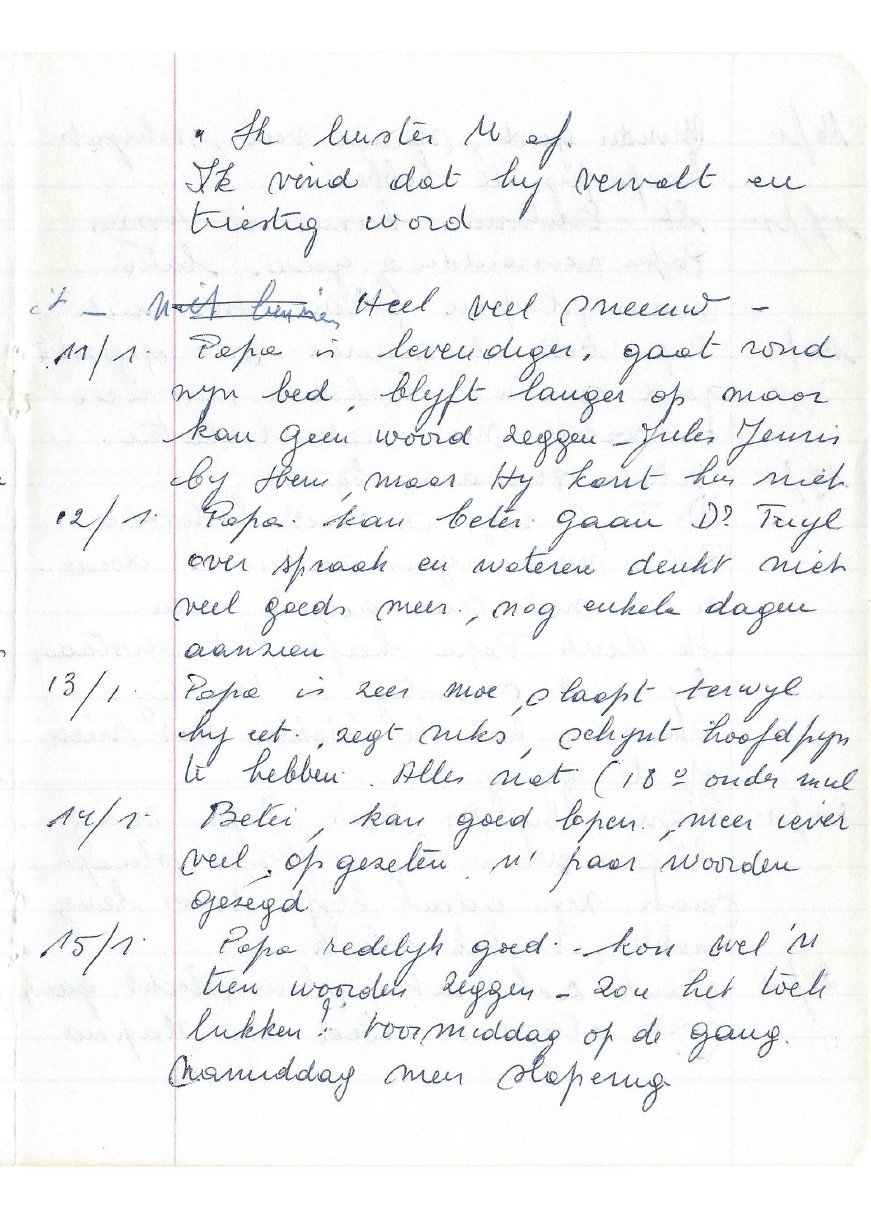 Ik luister U af.
Ik vind dat hy vervalt en
triestig word
- Heel veel sneeuw -
11/1. Papa is levendiger, gaat rond
zyn bed, blyft langer op maar
kan geen woord zeggen - Jules
by Hem, maar Hy kent hem niet
12/1. Papa kan beter gaan Dr Tuyl
over spraak en wateren denkt niet
veel goeds meer, nog enkele dagen
aanzien
13/1. Papa is zeer moe, slaapt terwyl
hy eet, zegt niks, schynt hoofdpyn
te hebben. Alles nat (18° onder nul
14/1. Beter, kan goed lopen, meer iever
veel op gezeten n' paar woorden
gezegd
15/1. Papa redelyk goed. - kon wel 'n
tien woorden zeggen - zou het toch
lukken? Voormiddag op de gang.
Namiddag meer slaperig.